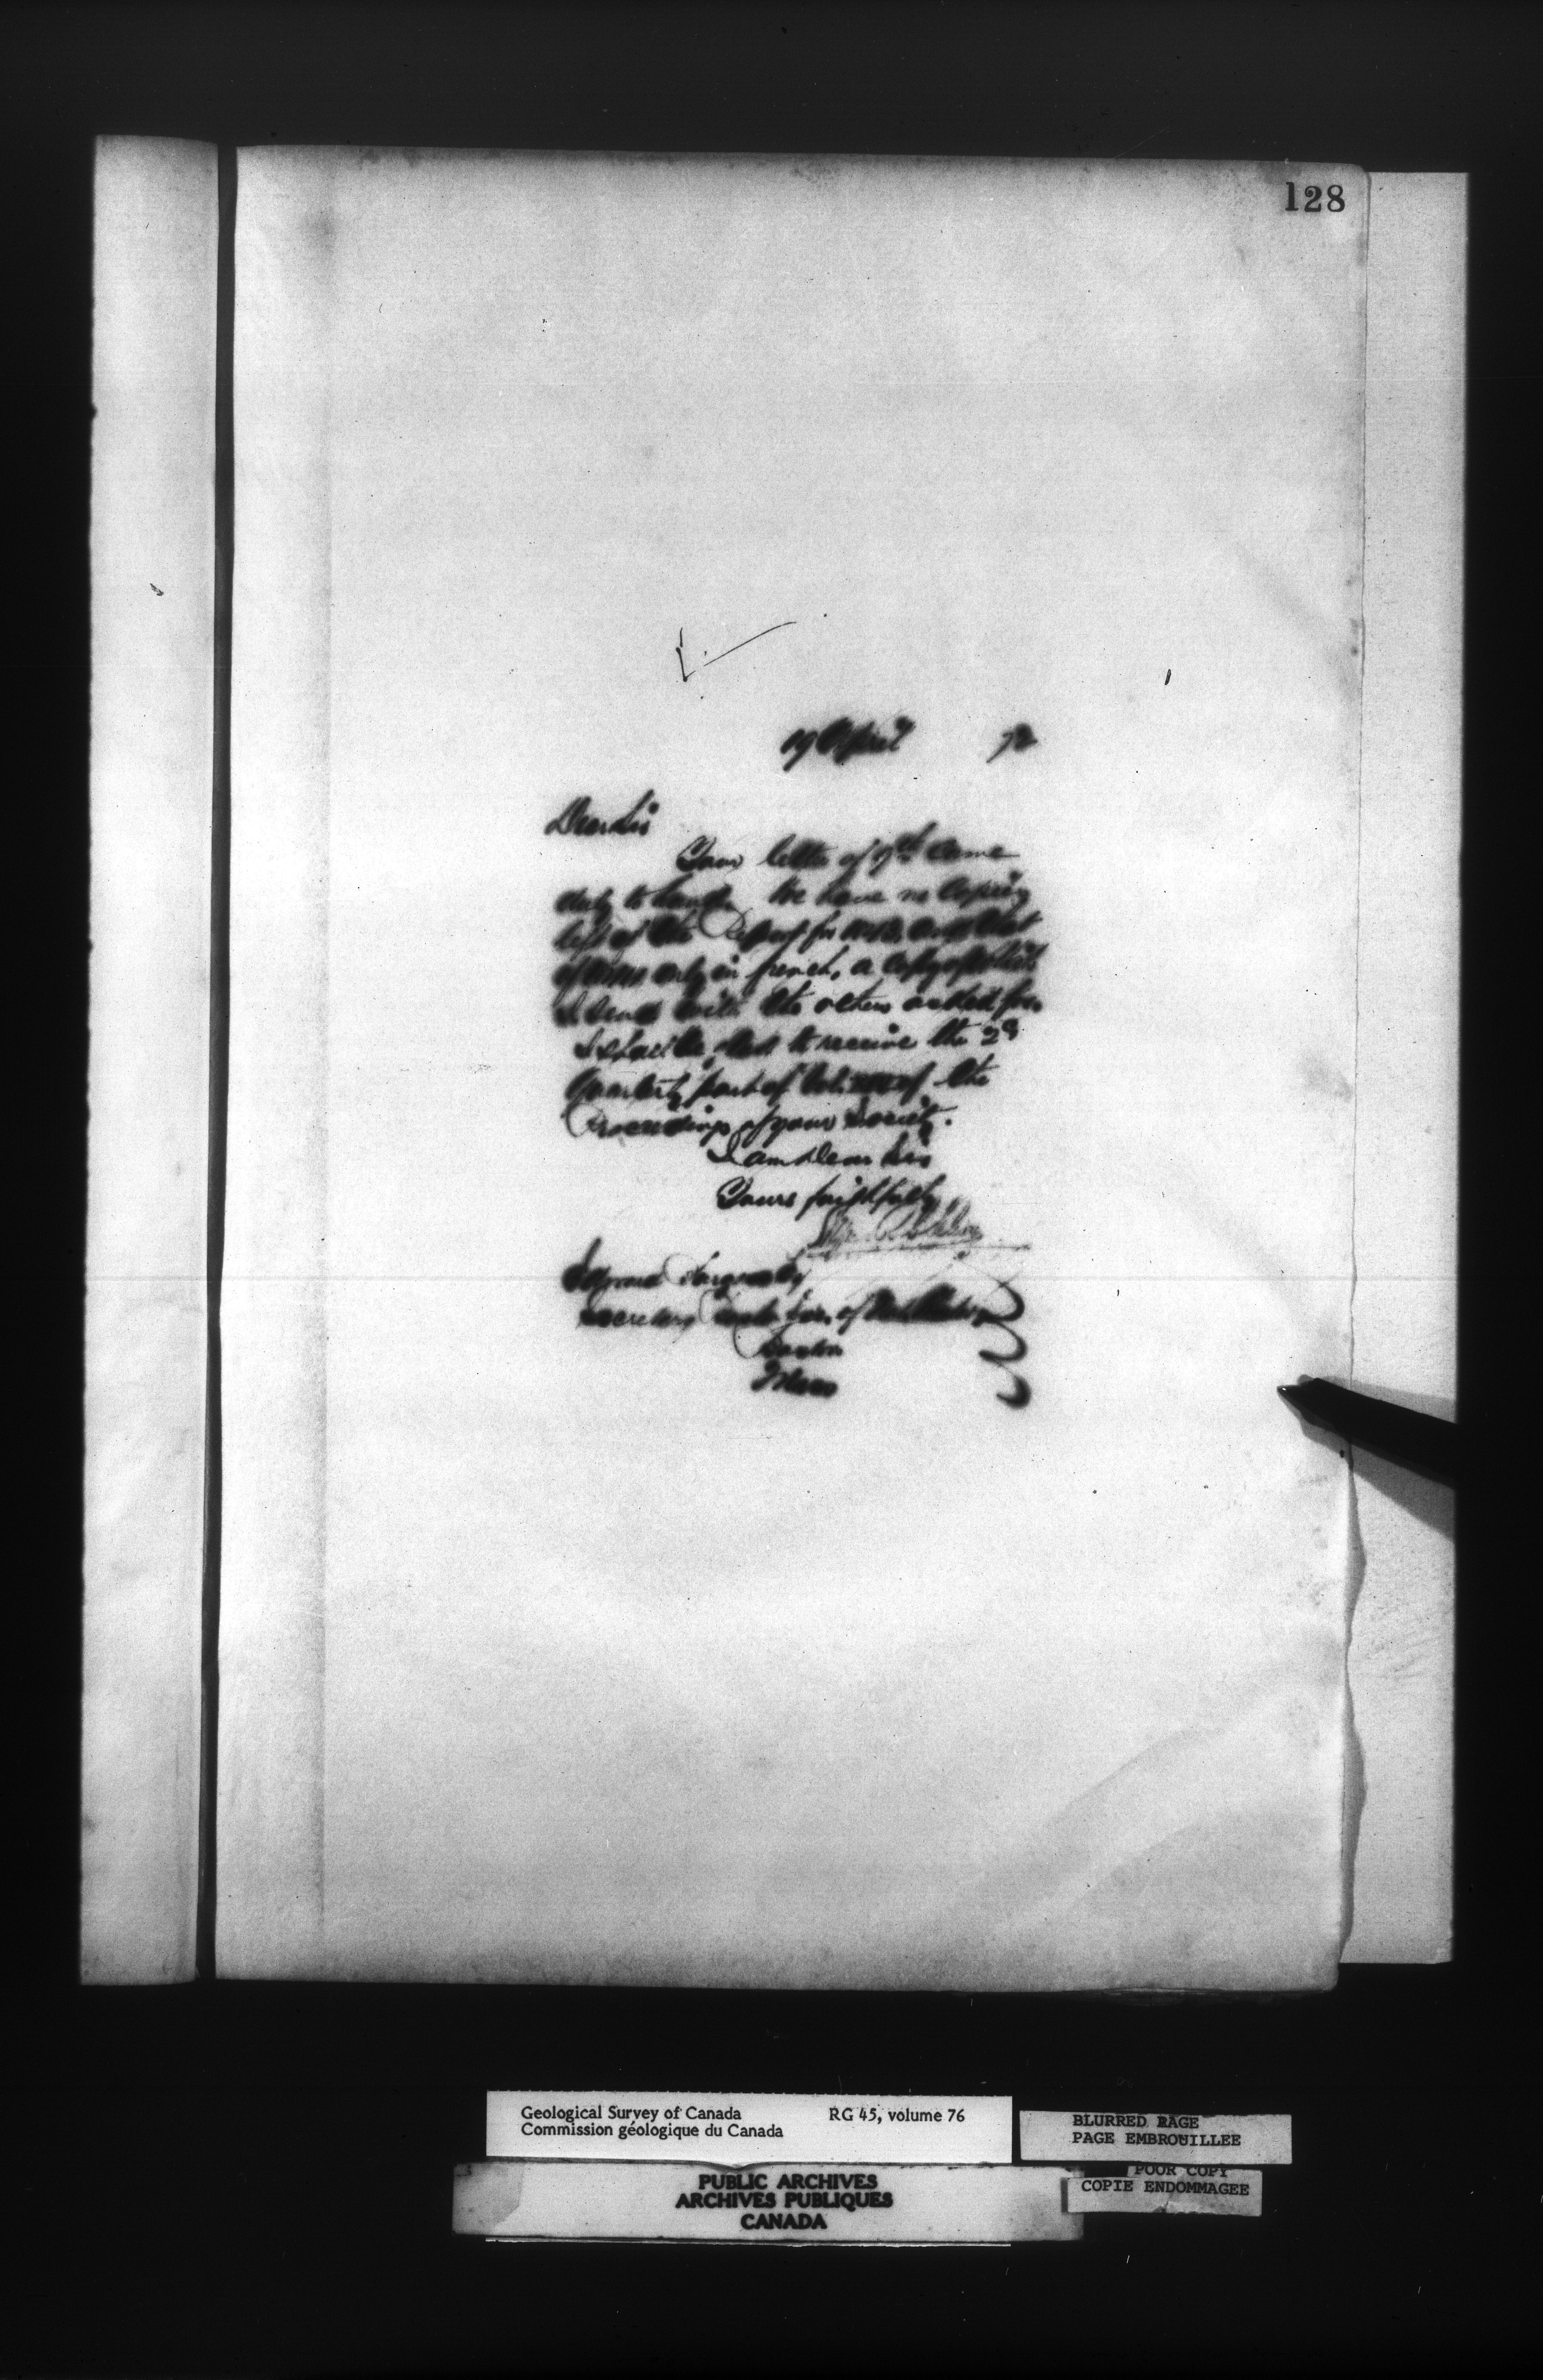 128
19 April 72
Dear Sir
Your letter of 9th came
duly to hand. We have no copies
left of the Report for and that
of only in french, a copy of which
I send with the others asked for.
I shall be glad to receive the 2d
Quarterly part of Vol. of the
Proceedings of your Society.
I am Dear Sir
Yours faithfully
Secretary Soc. of Nat. History
Boston
Mass
Geological Survey of Canada RG 45, volume 76
Commission géologique du Canada
BLURRED PAGE
PAGE EMBROUILLEE
POOR COPY
COPIE ENDOMMAGEE
PUBLIC ARCHIVES
ARCHIVES PUBLIQUES
CANADA